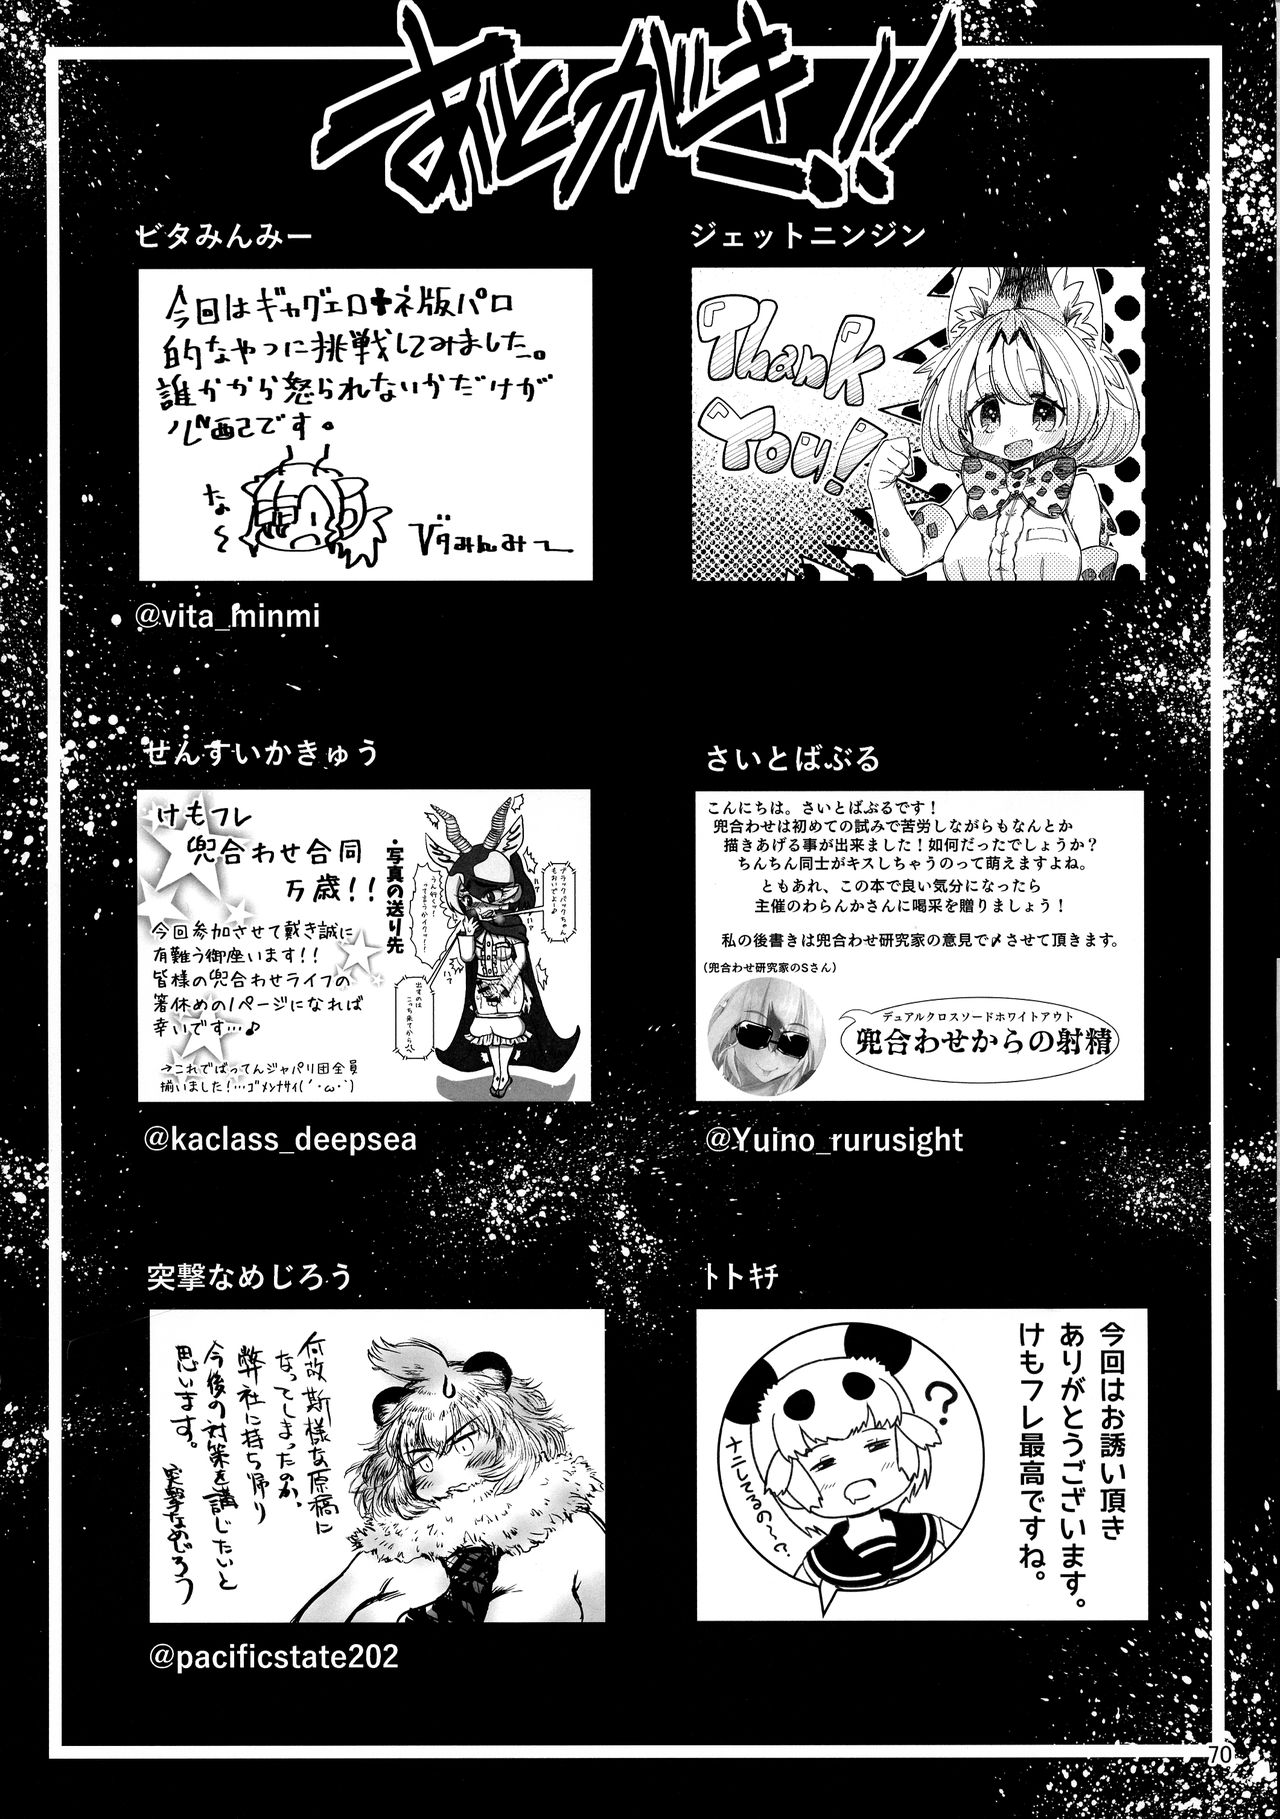 あとがき!!
ビタみんみー
今回はギャグエロ+ネ版パロ
的なやつに挑戦してみました。
誰かから怒られないかだけが
心配です。
な〜
ビタみんみー
@vita_minmi
ジェットニンジン
Thank
You!
せんすいかきゅう
けもフレ
兜合わせ合同
万歳!!
今回参加させて戴き誠に
有難う御座います!!
皆様の兜合わせライフの
箸休めの1ページになれば
幸いです…♪
→これでばってんジャパリ団全員
揃いました!…ゴメンナサイ(´・ω・`)
・写真の送り先
ブラックバックちゃん
もおいでよー♪
出すのは
こっち来てから
@kaclass_deepsea
さいとばぶる
こんにちは。さいとばぶるです!
兜合わせは初めての試みで苦労しながらもなんとか
描きあげる事が出来ました!如何だったでしょうか?
ちんちん同士がキスしちゃうのって萌えますよね。
ともあれ、この本で良い気分になったら
主催のわらんかさんに喝采を贈りましょう!
私の後書きは兜合わせ研究家の意見で〆させて頂きます。
(兜合わせ研究家のSさん)
デュアルクロスソードホワイトアウト
兜合わせからの射精
@Yuino_rurusight
突撃なめじろう
何故斯様な原稿に
なってしまったのか、
弊社に持ち帰り
今後の対策を講じたいと
思います。
突撃なめじろう
@pacificstate202
ﾄﾄｷﾁ
今回はお誘い頂き
ありがとうございます。
けもフレ最高ですね。
?
70